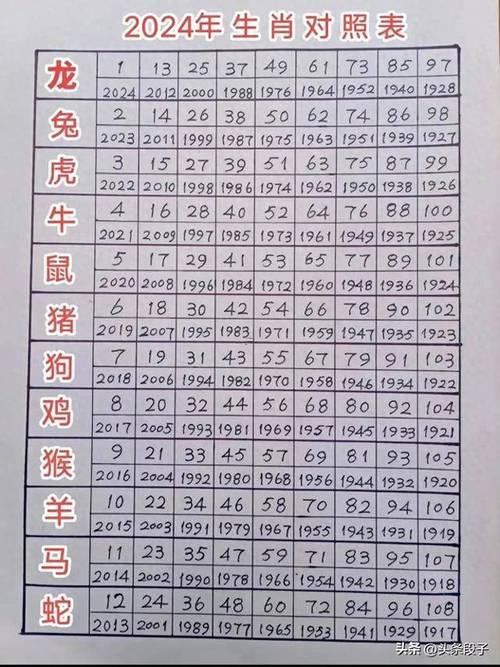 2024年生肖对照表
龙 1 13 25 37 49 61 73 85 97
2024 2012 2000 1988 1976 1964 1952 1940 1928
兔 2 14 26 38 50 62 74 86 98
2023 2011 1999 1987 1975 1963 1951 1939 1927
虎 3 15 27 39 51 63 75 87 99
2022 2010 1998 1986 1974 1962 1950 1938 1926
牛 4 16 28 40 52 64 76 88 100
2021 2009 1997 1985 1973 1961 1949 1937 1925
鼠 5 17 29 41 53 65 77 89 101
2020 2008 1996 1984 1972 1960 1948 1936 1924
猪 6 18 30 42 54 66 78 90 102
2019 2007 1995 1983 1971 1959 1947 1935 1923
狗 7 19 31 43 55 67 79 91 103
2018 2006 1994 1982 1970 1958 1946 1934 1922
鸡 8 20 32 44 56 68 80 92 104
2017 2005 1993 1981 1969 1957 1945 1933 1921
猴 9 21 33 45 57 69 81 93 105
2016 2004 1992 1980 1968 1956 1944 1932 1920
羊 10 22 34 46 58 70 82 94 106
2015 2003 1991 1979 1967 1955 1943 1931 1919
马 11 23 35 47 59 71 83 95 107
2014 2002 1990 1978 1966 1954 1942 1930 1918
蛇 12 24 36 48 60 72 84 96 108
2013 2001 1989 1977 1965 1953 1941 1929 1917
头条 @头条段子